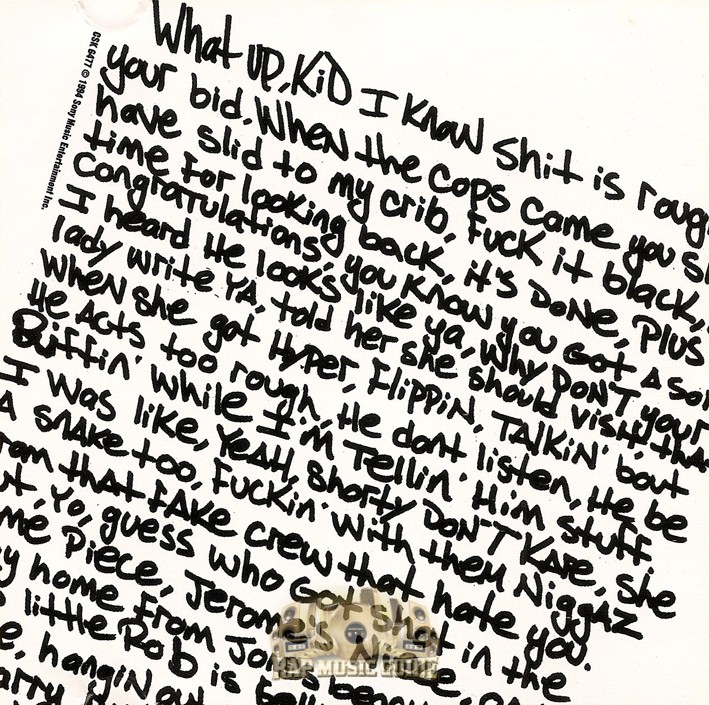 CSK 6477 © 1994 Sony Music Entertainment Inc.
What UP, KiD I KNow Shit is roug
your bid, When the Cops Came you s
have slid to my crib, Fuck it black,
time For looking back, it's DoNe, Plus
Congratulations, you KNow you Got A So
I heard He looks like ya, Why DoN'T your
lady write YA, told her she should visit, tha
When she got Hyper, Flippin, TAlKin' bout
He Acts too rough, He dont listen, He be
Riffin' While I'm Tellin' Him stuff.
I Was like, YeAH, Shorty DoN'T KAre, She
A SNAKe too, Fuckin' With theM NiggAZ
rom thAt FAKe Crew that hate you.
ut, Yo, guess who Got Shot in the
me Piece, Jerome's Niece,
y home From Jo
little Rob is
e, hangin out
arry
RAP MUSIC GUIDE